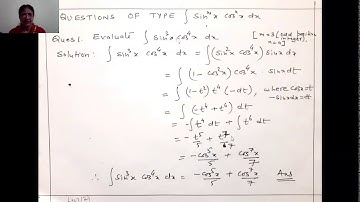 QUESTIONS OF TYPE ∫ sinᵐx cosⁿx dx
Ques1. Evaluate ∫ sin³x cos⁴x dx [m=3 (odd positive integer), n=4]
Solution: ∫ sin³x cos⁴x dx = ∫ (sin²x cos⁴x) sinx dx
= ∫ (1-cos²x) cos⁴x sinx dx
= ∫ (1-t²) t⁴ (-dt), where cosx=t
-sinx dx=dt
= ∫ (-t⁴+t⁶) dt
= -∫ t⁴ dt + ∫ t⁶ dt
= -t⁵/5 + t⁷/7
= -cos⁵x/5 + cos⁷x/7
∴ ∫ sin³x cos⁴x dx = -cos⁵x/5 + cos⁷x/7 Ans